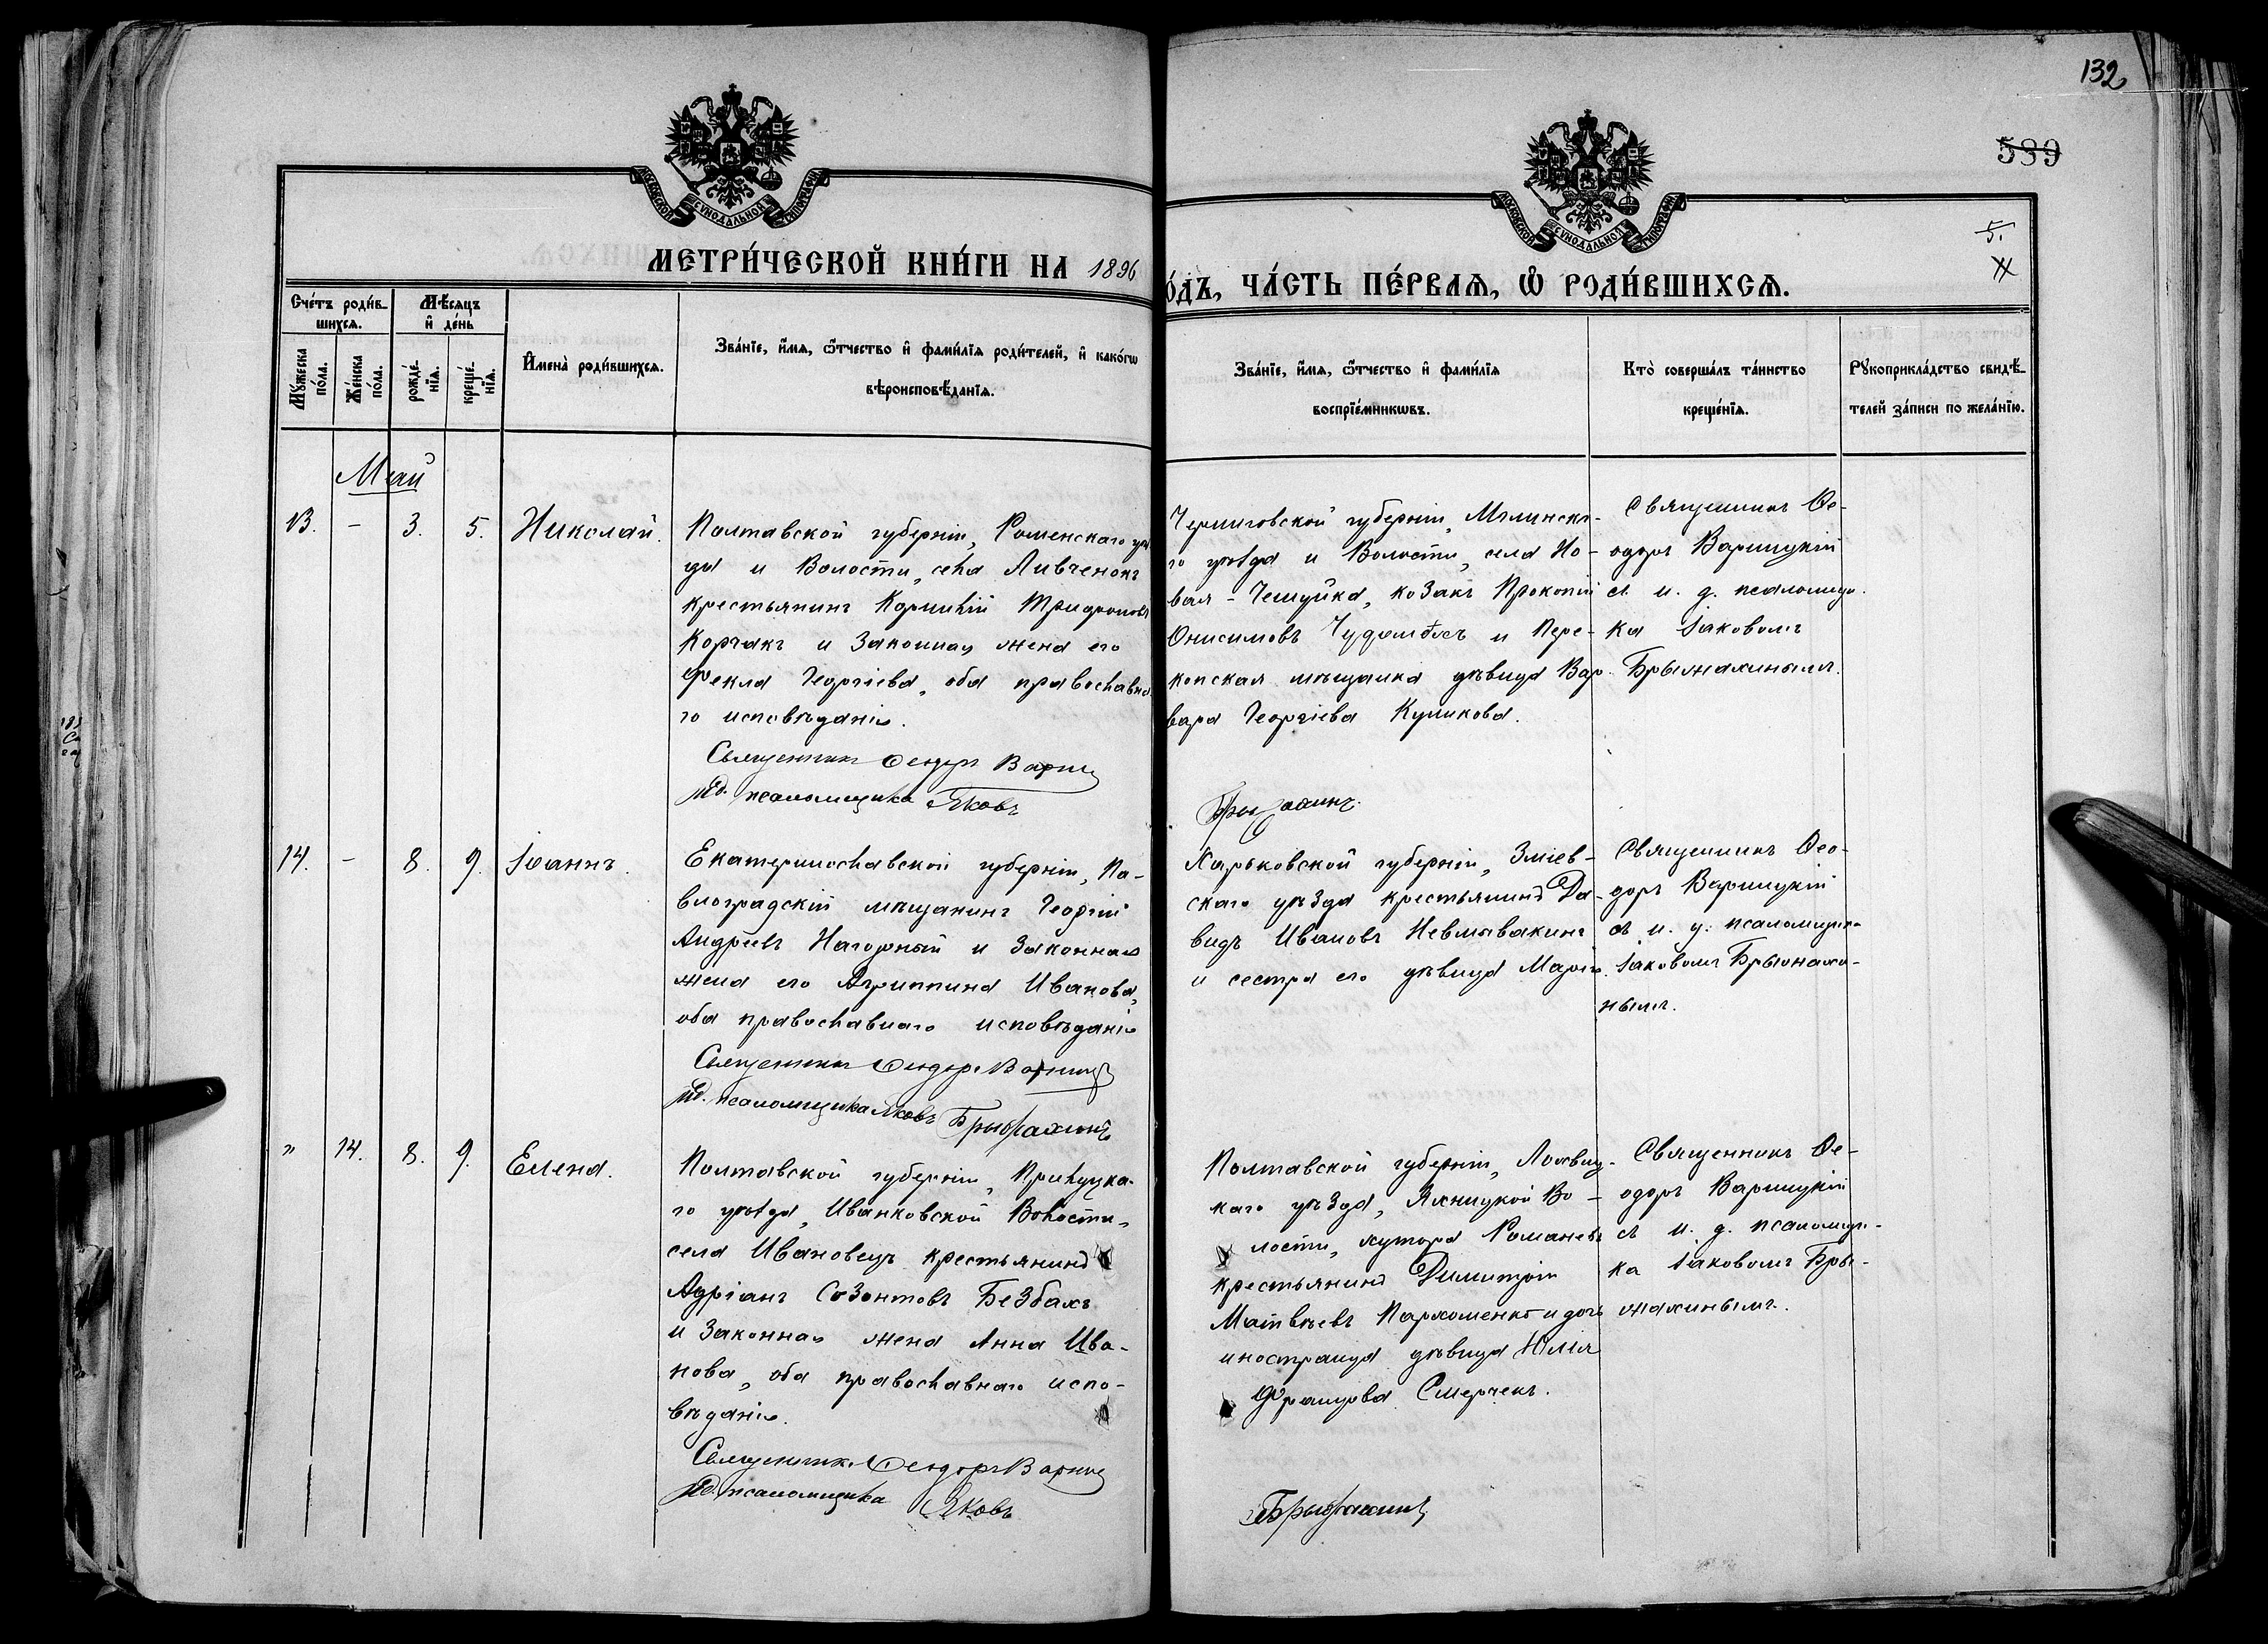 132
589
МОСКОВСКОЙ СУНОДАЛЬНОЙ ТИПОГРАФІИ
МОСКОВСКОЙ СУНОДАЛЬНОЙ ТИПОГРАФІИ
5.
МЕТРИ́ЧЕСКОЙ КНИ́ГИ НА 1896
О́ДЪ, ЧА́СТЬ ПЕ́РВАѦ, Ѡ҆ РОДИ́ВШИХСѦ.
Сче́тъ роди́в-
шихсѧ.
Мѣ́сяцъ
и҆ де́нь
Мꙋ́жеска
по́ла.
Же́нска
по́ла.
рожде́-
нїѧ.
креще́-
нїѧ.
И҆мена̀ роди́вшихсѧ.
Зва́нїе, и҆́мѧ, ѻ҆́тчество и҆ фами́лїѧ роди́телей, и҆ како́гѡ
вѣроисповѣ́данїѧ.
Зва́нїе, и҆́мѧ, ѻ҆́тчество и҆ фами́лїѧ
воспрїе́мникѡвъ.
Кто̀ соверша́лъ та́инство
креще́нїѧ.
Рꙋкоприкла́дство свидѣ́-
телей за́писи по жела́нїю.
Май
13. - 3. 5. Николай.
Полтавской губерніи, Роменскаго уѣз
да и Волости, села Ливченокъ
крестьянинъ Корнилій Трифоновъ
Корчакъ и законная жена его
Фекла Георгіева, оба православна
го исповѣданія.
Священникъ Ѳеодоръ Варниц
И.д. псаломщика Яковъ
Черниговской губерніи, Мглинска-
го уѣзда и Волости, села Но-
вая-Чешуйка, козакъ Прокопій
Онисимовъ и Пере-
копская мѣщанка дѣвица Вар-
вара Георгіева Куликова.
Священникъ Ѳе-
одоръ Варницкій
съ и. д. псаломщи-
ка Іаковомъ
Брыжахинымъ.
14. - 8. 9. Іоаннъ.
Екатеринославской губерніи, Па-
влоградскій мѣщанинъ Георгій
Андреевъ Нагорный и законная
жена его Агриппина Иванова,
оба православнаго исповѣданія
Священникъ Ѳеодоръ Варниц
И.д. псаломщика Яковъ
Харьковской губерніи, Зміев-
скаго уѣзда крестьянинъ Да-
видъ Ивановъ Невмывакинъ
и сестра его дѣвица Марія.
Священникъ Ѳео-
доръ Варницкій
съ и. д. псаломщика
Іаковомъ Брыжахи-
нымъ.
" 14. 8. 9. Елена.
Полтавской губерніи, Прилуцка-
го уѣзда, Иванковской Волости,
села Ивановецъ крестьянинъ
Адріанъ Созонтовъ Безбахъ
и законная жена Анна Ива-
нова, оба православнаго испо-
вѣданія.
Священникъ Ѳеодоръ Варниц
И.д. псаломщика Яковъ
Полтавской губерніи, Лохвиц-
каго уѣзда, Яхницкой Во-
лости, хутора Романевъ
крестьянинъ Димитрій
Матвѣевъ Пархоменко и дочь
иностранца дѣвица Юлія
Францова Смерчекъ.
Священникъ Ѳе-
одоръ Варницкій
съ и. д. псаломщи-
ка Іаковомъ Бры-
жахинымъ.